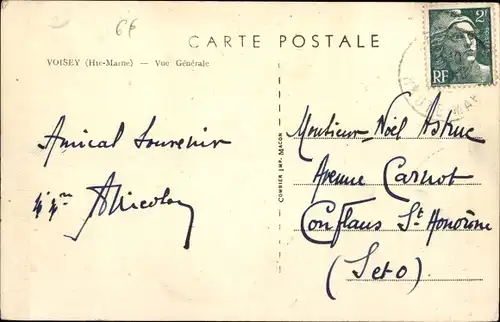 66
CARTE POSTALE
VOISEY (Hte-Marne) — Vue Générale
2F
RF
Amical Souvenir
COMBIER IMP. MACON
Monsieur Noël Astruc
Avenue Carnot
Conflans St Honorine
(S et O)